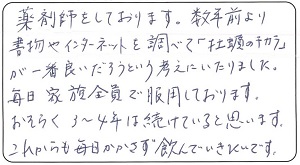 薬剤師をしております。数年前より
書物やインターネットを調べて「牡蠣のチカラ」
が一番良いだろうという考えにいたりました。
毎日家族全員で服用しております。
おそらく3〜4年は続けていると思います。
これからも毎日かかさず飲んでいきたいです。